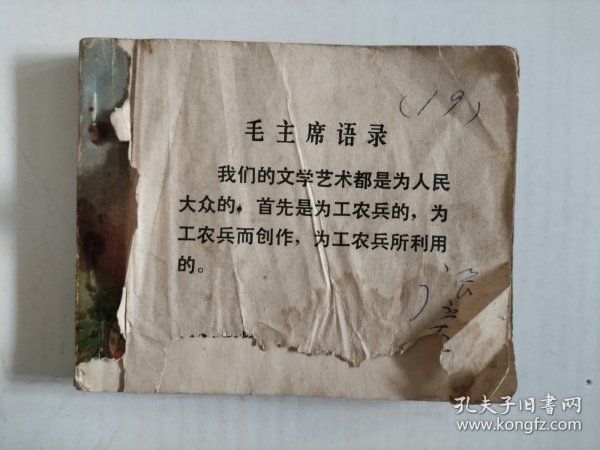 (19)
毛主席语录
我们的文学艺术都是为人民
大众的，首先是为工农兵的，为
工农兵而创作，为工农兵所利用
的。
孔夫子旧书网
www.kongfz.com